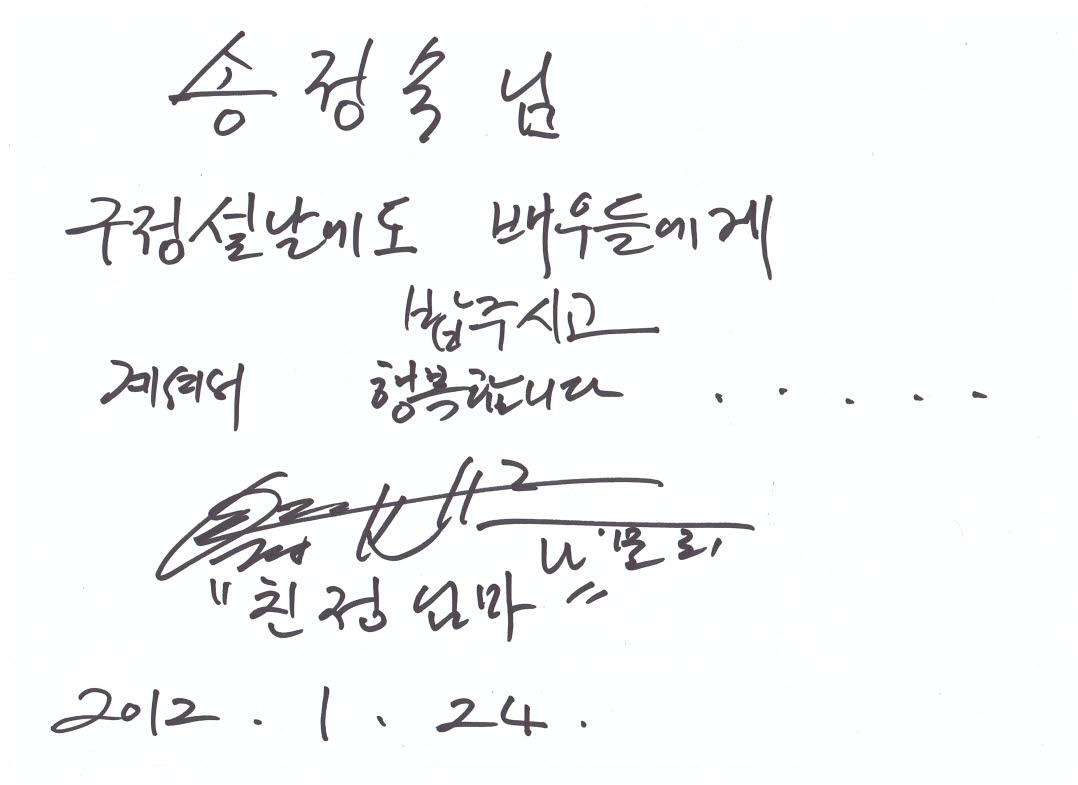 송정숙 님
구정설날에도 배우들에게
밥주시고
계셔서 행복합니다 . . . . .
"친정엄마"
2012 . 1 . 24 .